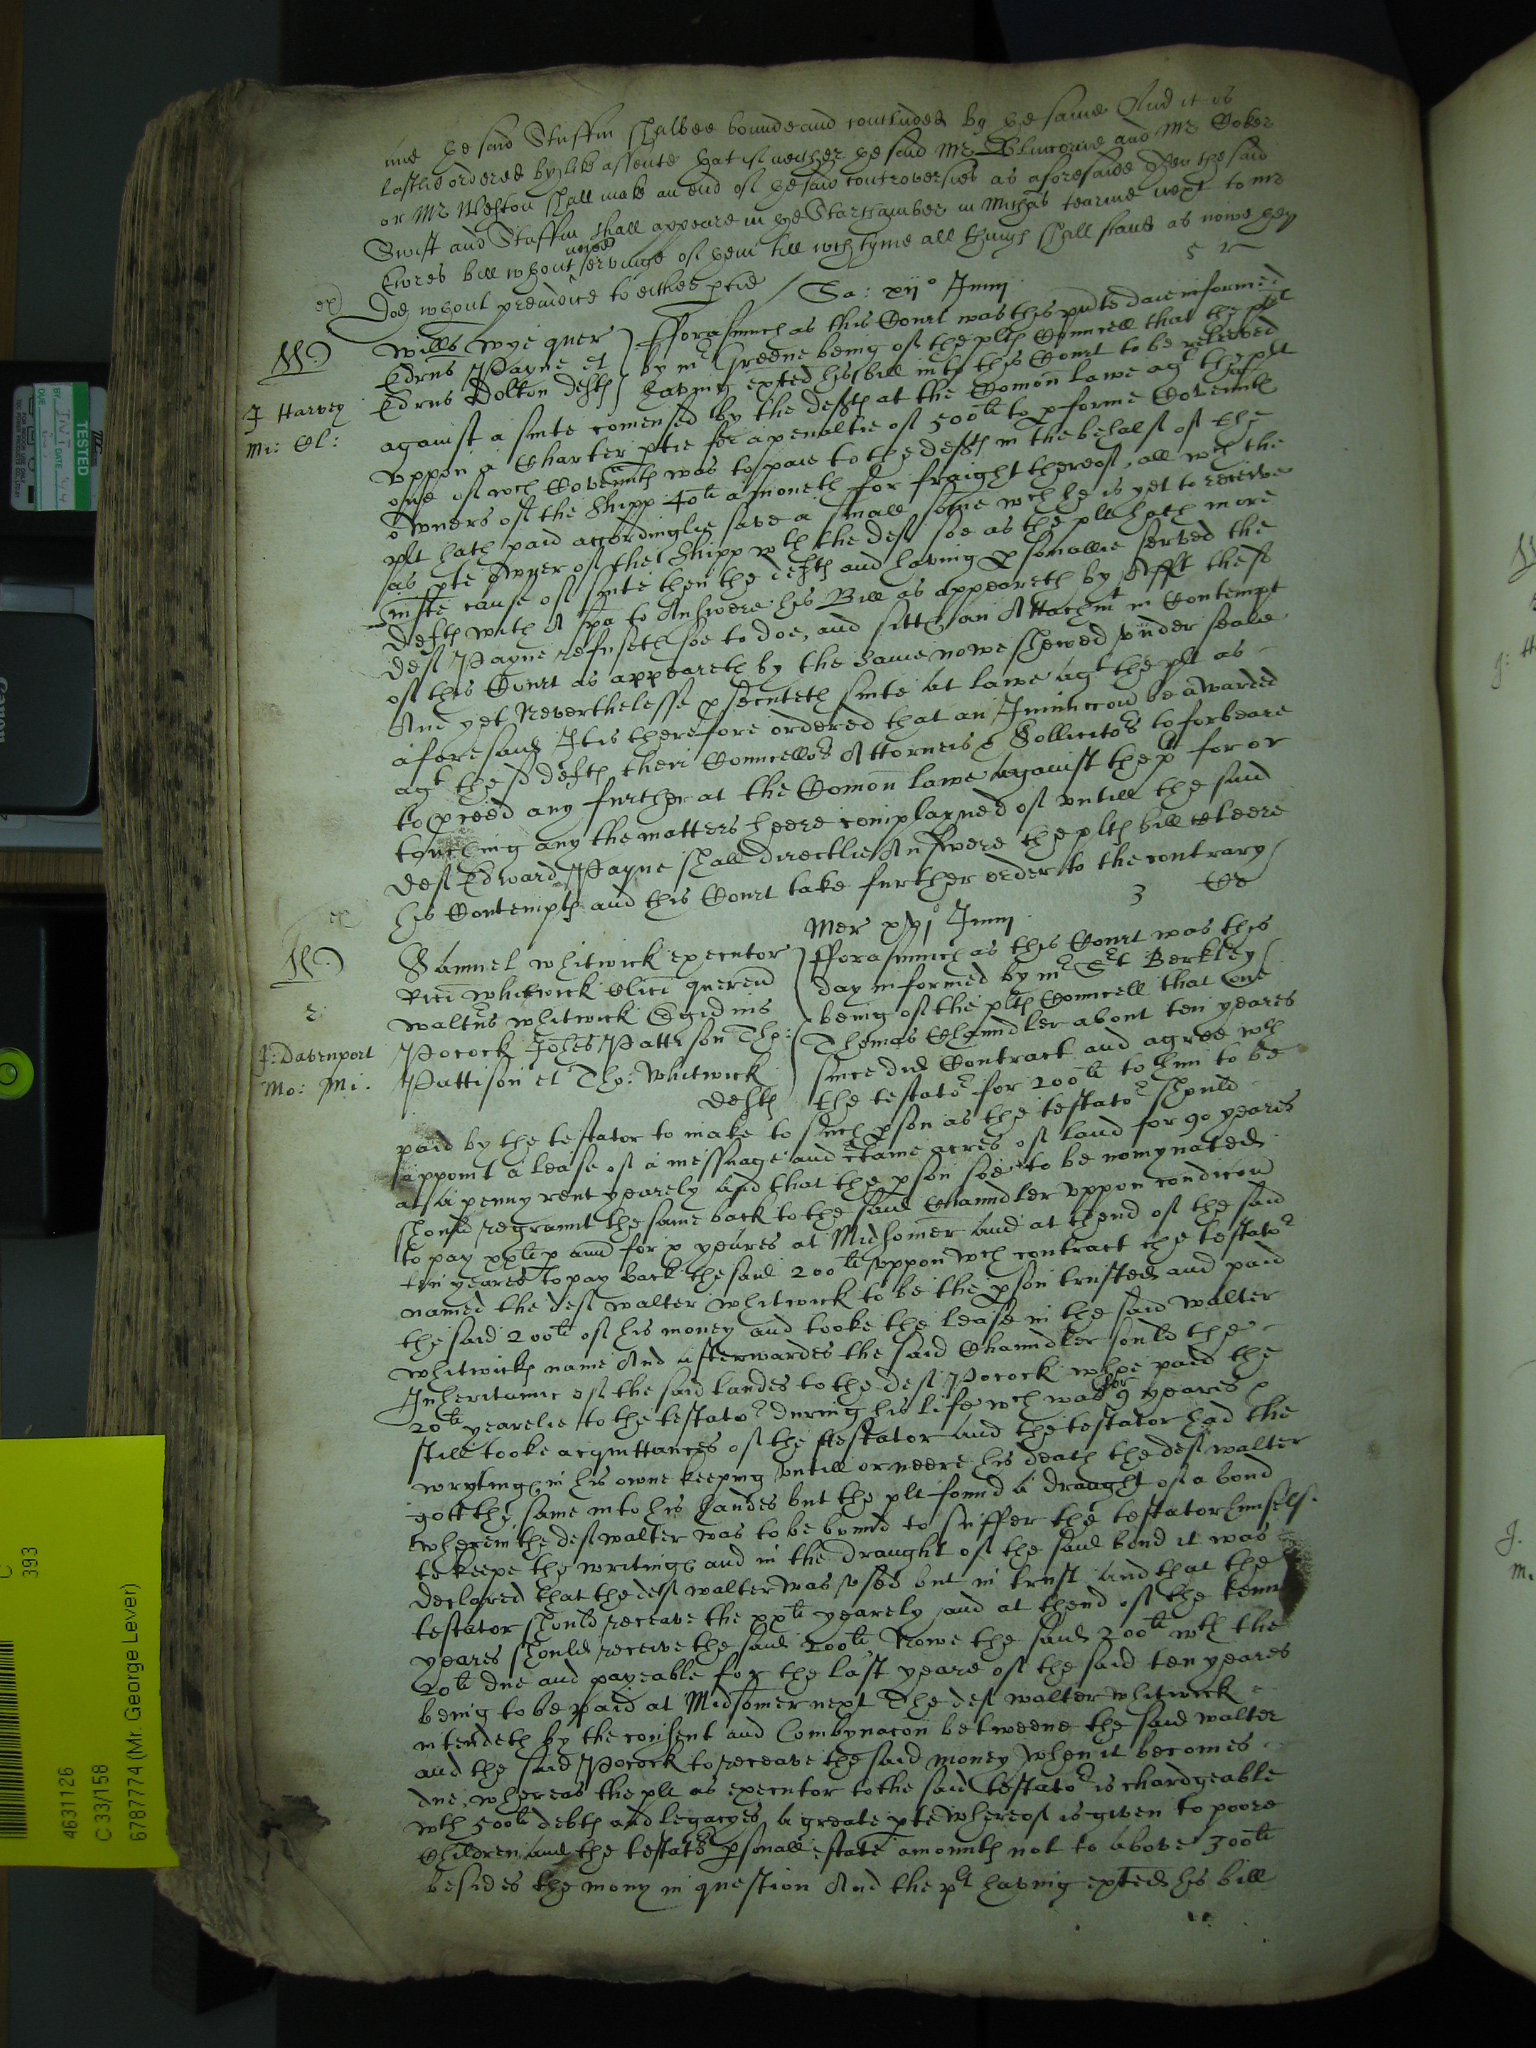 and the said Stuffin shalbee bounde and concluded by the same And it is
lastlie ordered by like assente that if neither the said Mr and Mr Coker
or Mr Weston shall make an end of the said controversies as aforesaide then the said
Swift and Stuffin shall appeare in the Starchamber in Michas tearme next to
bill wthout serveinge of them till wch tyme all things shall stand as nowe they
doe wthout preiudice to either ptie
Sa: xijo Junij
Willms Wye quer
Edrus Payne et
Edrus Dolton defts
fforasmuch as this Court was this pnte daie informed
by mr Greene being of the plts Councell that the plt
having exted his bill into this Court to be releeved
J Harvey
Mi: Cl:
against a suite comensed by the defts at the Comon lawe agt the plt
uppon a Charter ptie for a penaltie of 500li to pforme Covennts
one of wch Covennts was to paie to the defts in the behalf of the
Owners of the Shipp 40li a moneth for fraight thereof, all wch the
plt hath paid accordinglie save a small some wch he is yet to receive
as pte Owner of the Shipp wth the deft soe as the plt hath more
iuste cause of suite then the defts and having psonallie served the
defts with A spa to Answere his Bill as appeareth by Afft these
deft Payne refuseth soe to doe, and sitts an Attachmt in Contempt
of this Court as appeareth by the same nowe shewed under seale
And yet Neverthelesse psecuteth suite at lawe agt the plt as
aforesaid It is therefore ordered that an Iniunccon be awarded
agt the sd defts their Councellors Attorneis & Sollicitors to forbeare
to pceed any further at the Comon lawe against the plt for or
touching any the matters heere complayned of untill the said
deft Edward Payne shall directlie Answere the plts bill cleere
his Contempts and this Court take further order to the contrary
3
Mer xvjo Junij
Samuel Whitwick executor
Rici Whitwick Clici querend
Walterus Whitwick Egidius
Pocock Johes Pattison Tho:
Pattison et Tho: Whitwick
defts
2
J: Davenport
Mo: Mi:
fforasmuch as this Court was this
day informed by mr Sert Berkley
being of the plts Councell that one
Thomas Chaundler about ten yeares
since did Contract and agree wth
the testator for 200li to him to be
paid by the testator to make to such pson as the testator should
appoint a lease of a messuage and ctaine acres of land for 90 yeares
att a penny rent yearely And that the pson soe to be nomynated
should regraunt the same back to the said Chaundler uppon condicon
to pay xxli p ann for x yeares at Midsomer and at thend of the said
ten yeares to pay back the said 200li uppon wch contract the testator
named the deft Walter Whitwick to be the pson trusted and paid
the said 200li of his money and tooke the lease in the said Walter
Whitwicks name And afterwardes the said Chaundler sould the
Inheritance of the said landes to the deft Pocock whoe paid the
20li yearelie to the testator during his life wch was for 9 yeares &
still tooke acquittances of the testator and the testator had the
wrytings in his owne keeping untill or neere his death the deft Walter
gott the same into his handes but the plt found a draught of a bond
wherein the deft Walter was to be bound to suffer the testator himself
to keepe the writings and in the draught of the said bond it was
declared that the deft Walter was used but in trust and that the
testator should receave the xxli yearely and at thend of the tenn
yeares should receive the said 200li Nowe the said 200li wth the
20li due and payeable for the last yeare of the said ten yeares
being to be paid at Midsomer next The deft Walter Whitwick
intendeth by the consent and Combynacon betweene the said Walter
and the said Pocock to receave the said money when it becomes
due, whereas the plt as executor to the said testator is chardgeable
wth 500li debts and legacyes, a greate pte whereof is given to poore
Children and the testators psonall estate amounts not to above 300li
besides the mony in question And the plt having exted his bill
4631126
C 33/158
6787774 (Mr. George Lever)
C
393
TESTED